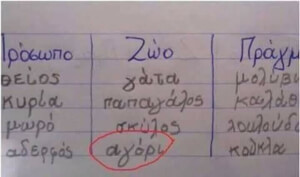 Πρόσωπο Ζώο Πράγμ
θείος γάτα μολύβι
κυρία παπαγάλος καλάθ
μωρό σκύλος λουλούδ
αδερφός αγόρι κούκλα